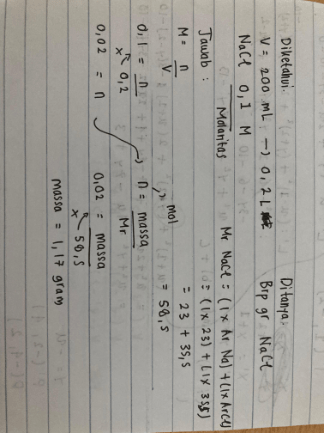 Diketahui:
V = 200 mL → 0,2 L
NaCl 0,1 M
Molaritas
Ditanya:
Brp gr NaCl
Jawab:
M = n
V
0,1 = n
0,2
0,02 = n
Mr NaCl = (1 x Ar Na) + (1 x Ar Cl)
= (1 x 23) + (1 x 35,5)
= 23 + 35,5
= 58,5
mol
n = massa
Mr
0,02 = massa
58,5
massa = 1,17 gram